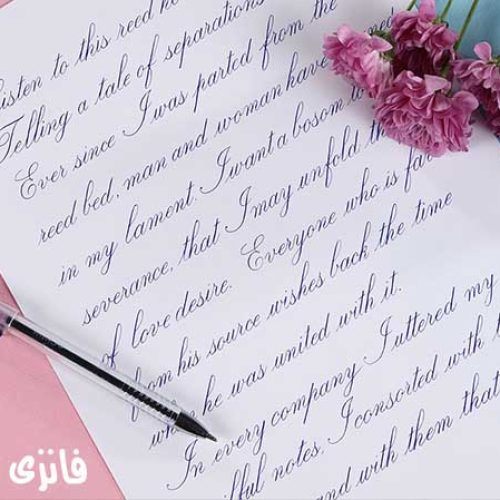 Listen to this reed
Telling a tale of separations
Ever since I was parted from the
reed bed, man and woman have moaned
in my lament. I want a bosom to
severance, that I may unfold the
of love desire. Everyone who is far
from his source wishes back the time
when he was united with it.
In every company I uttered my
notes, I consorted with
and with them that
فانزی